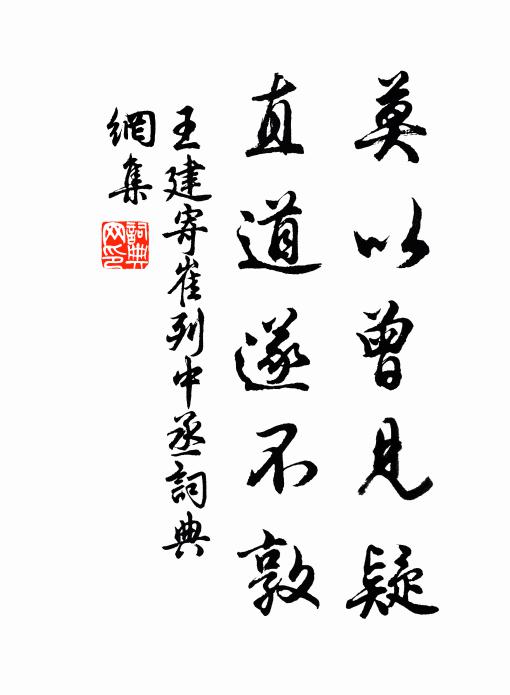 莫以曾見疑
直道遂不敦
王建寄崔列中丞詞典
網集
詞典網印